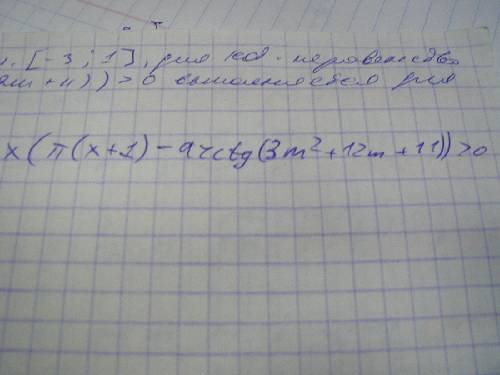 . [-3; 1], для неравенство
2m + 11)) > 0 выполняется для
x(π(x+1) - arctg(3m²+12m+11)) > 0